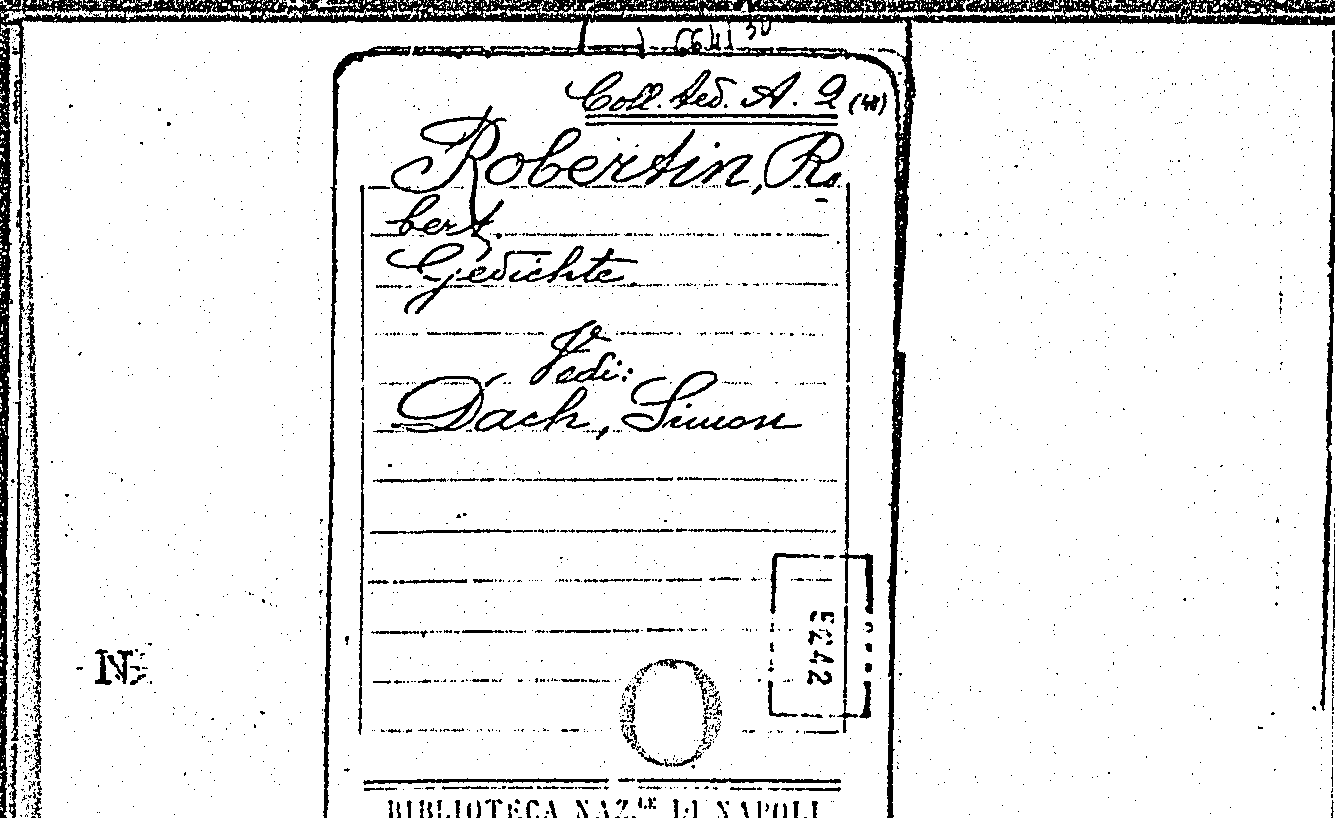 Coll. ted. A. 2 (48)
Robertin, Ro
bert.
Gedichte
Vedi:
Dach, Simon
5242
N
BIBLIOTECA NAZ.LE DI NAPOLI